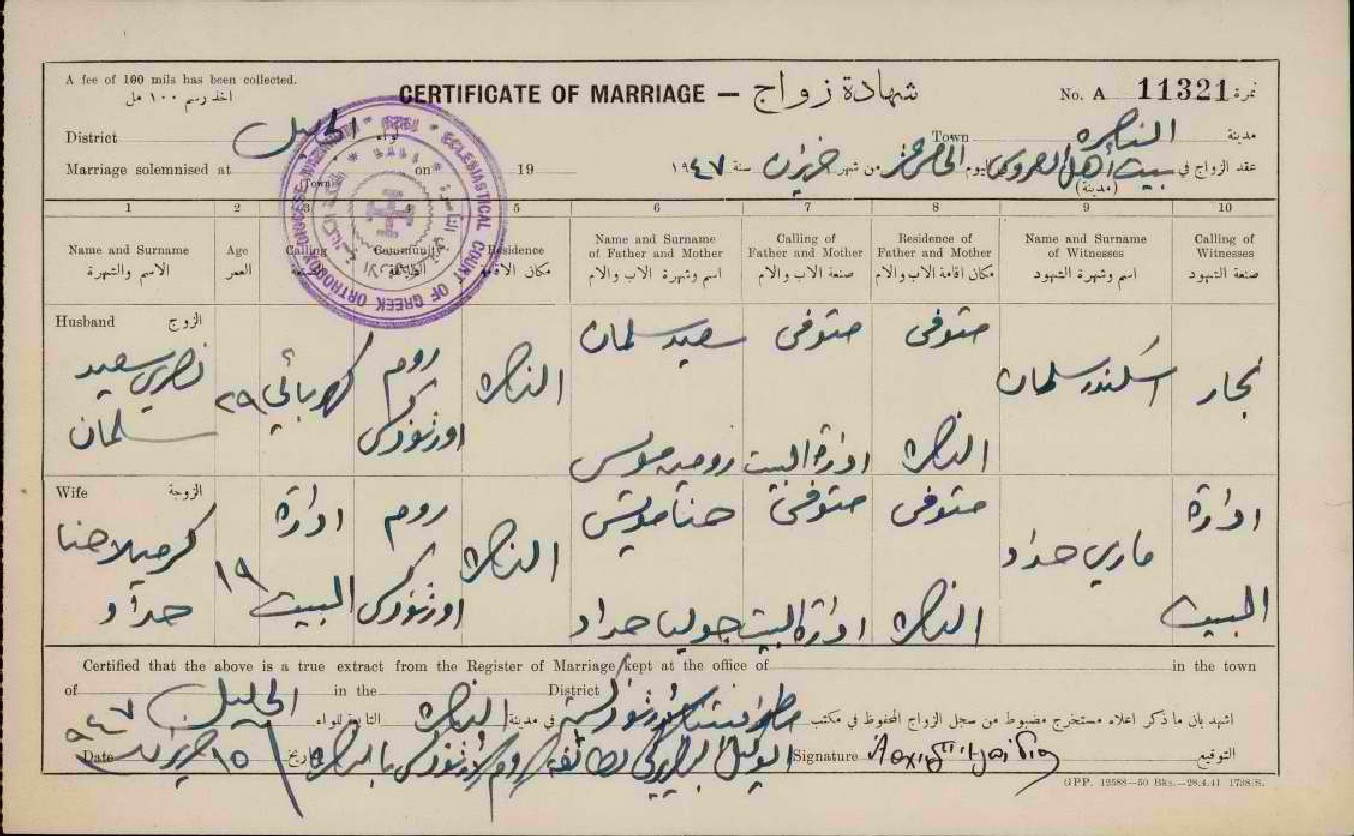 A fee of 100 mils has been collected.
اخذ رسم ١٠٠ مل
CERTIFICATE OF MARRIAGE — شهادة زواج
No. A 11321 نمرة
District الجليل لواء
Town الناصرة مدينة
Marriage solemnised at (Town) on 19
عقد الزواج في بيت أهل العروس (مدينة) يوم الخامس عشر من شهر حزيران سنة ١٩٤٧
ECLESIASTICAL COURT OF GREEK ORTHODOX
1 2 3 4 5 6 7 8 9 10
Name and Surname
الاسم والشهرة
Age
العمر
Calling
Community
الطائفة
Residence
مكان الاقامة
Name and Surname
of Father and Mother
اسم وشهرة الاب والام
Calling of
Father and Mother
صنعة الاب والام
Residence of
Father and Mother
مكان اقامة الاب والام
Name and Surname
of Witnesses
اسم وشهرة الشهود
Calling of
Witnesses
صنعة الشهود
Husband الزوج
نصري سعيد
سلمان
٢٩
كهربائي
روم
اورثوذكس
الناصرة
سعيد سلمان
متوفى
متوفى
اسكندر سلمان
نجار
موسى
ادارة البيت
الناصرة
Wife الزوجة
كرميلا حنا
حداد
١٩
ادارة
البيت
روم
اورثوذكس
الناصرة
حنا
متوفى
متوفى
ماري حداد
ادارة
البيت
جوليا حداد
ادارة البيت
الناصرة
Certified that the above is a true extract from the Register of Marriage kept at the office of in the town
of in the District
اشهد بان ما ذكر اعلاه مستخرج مضبوط من سجل الزواج المحفوظ في مكتب
في مدينة الناصرة التابعة للواء الجليل
Date ١٥ حزيران ٩٤٧ تاريخ
الروم الارثوذكس بالناصرة
Signature التوقيع
GPP. 12588—50 Bks.—28.4.41 1738/S.